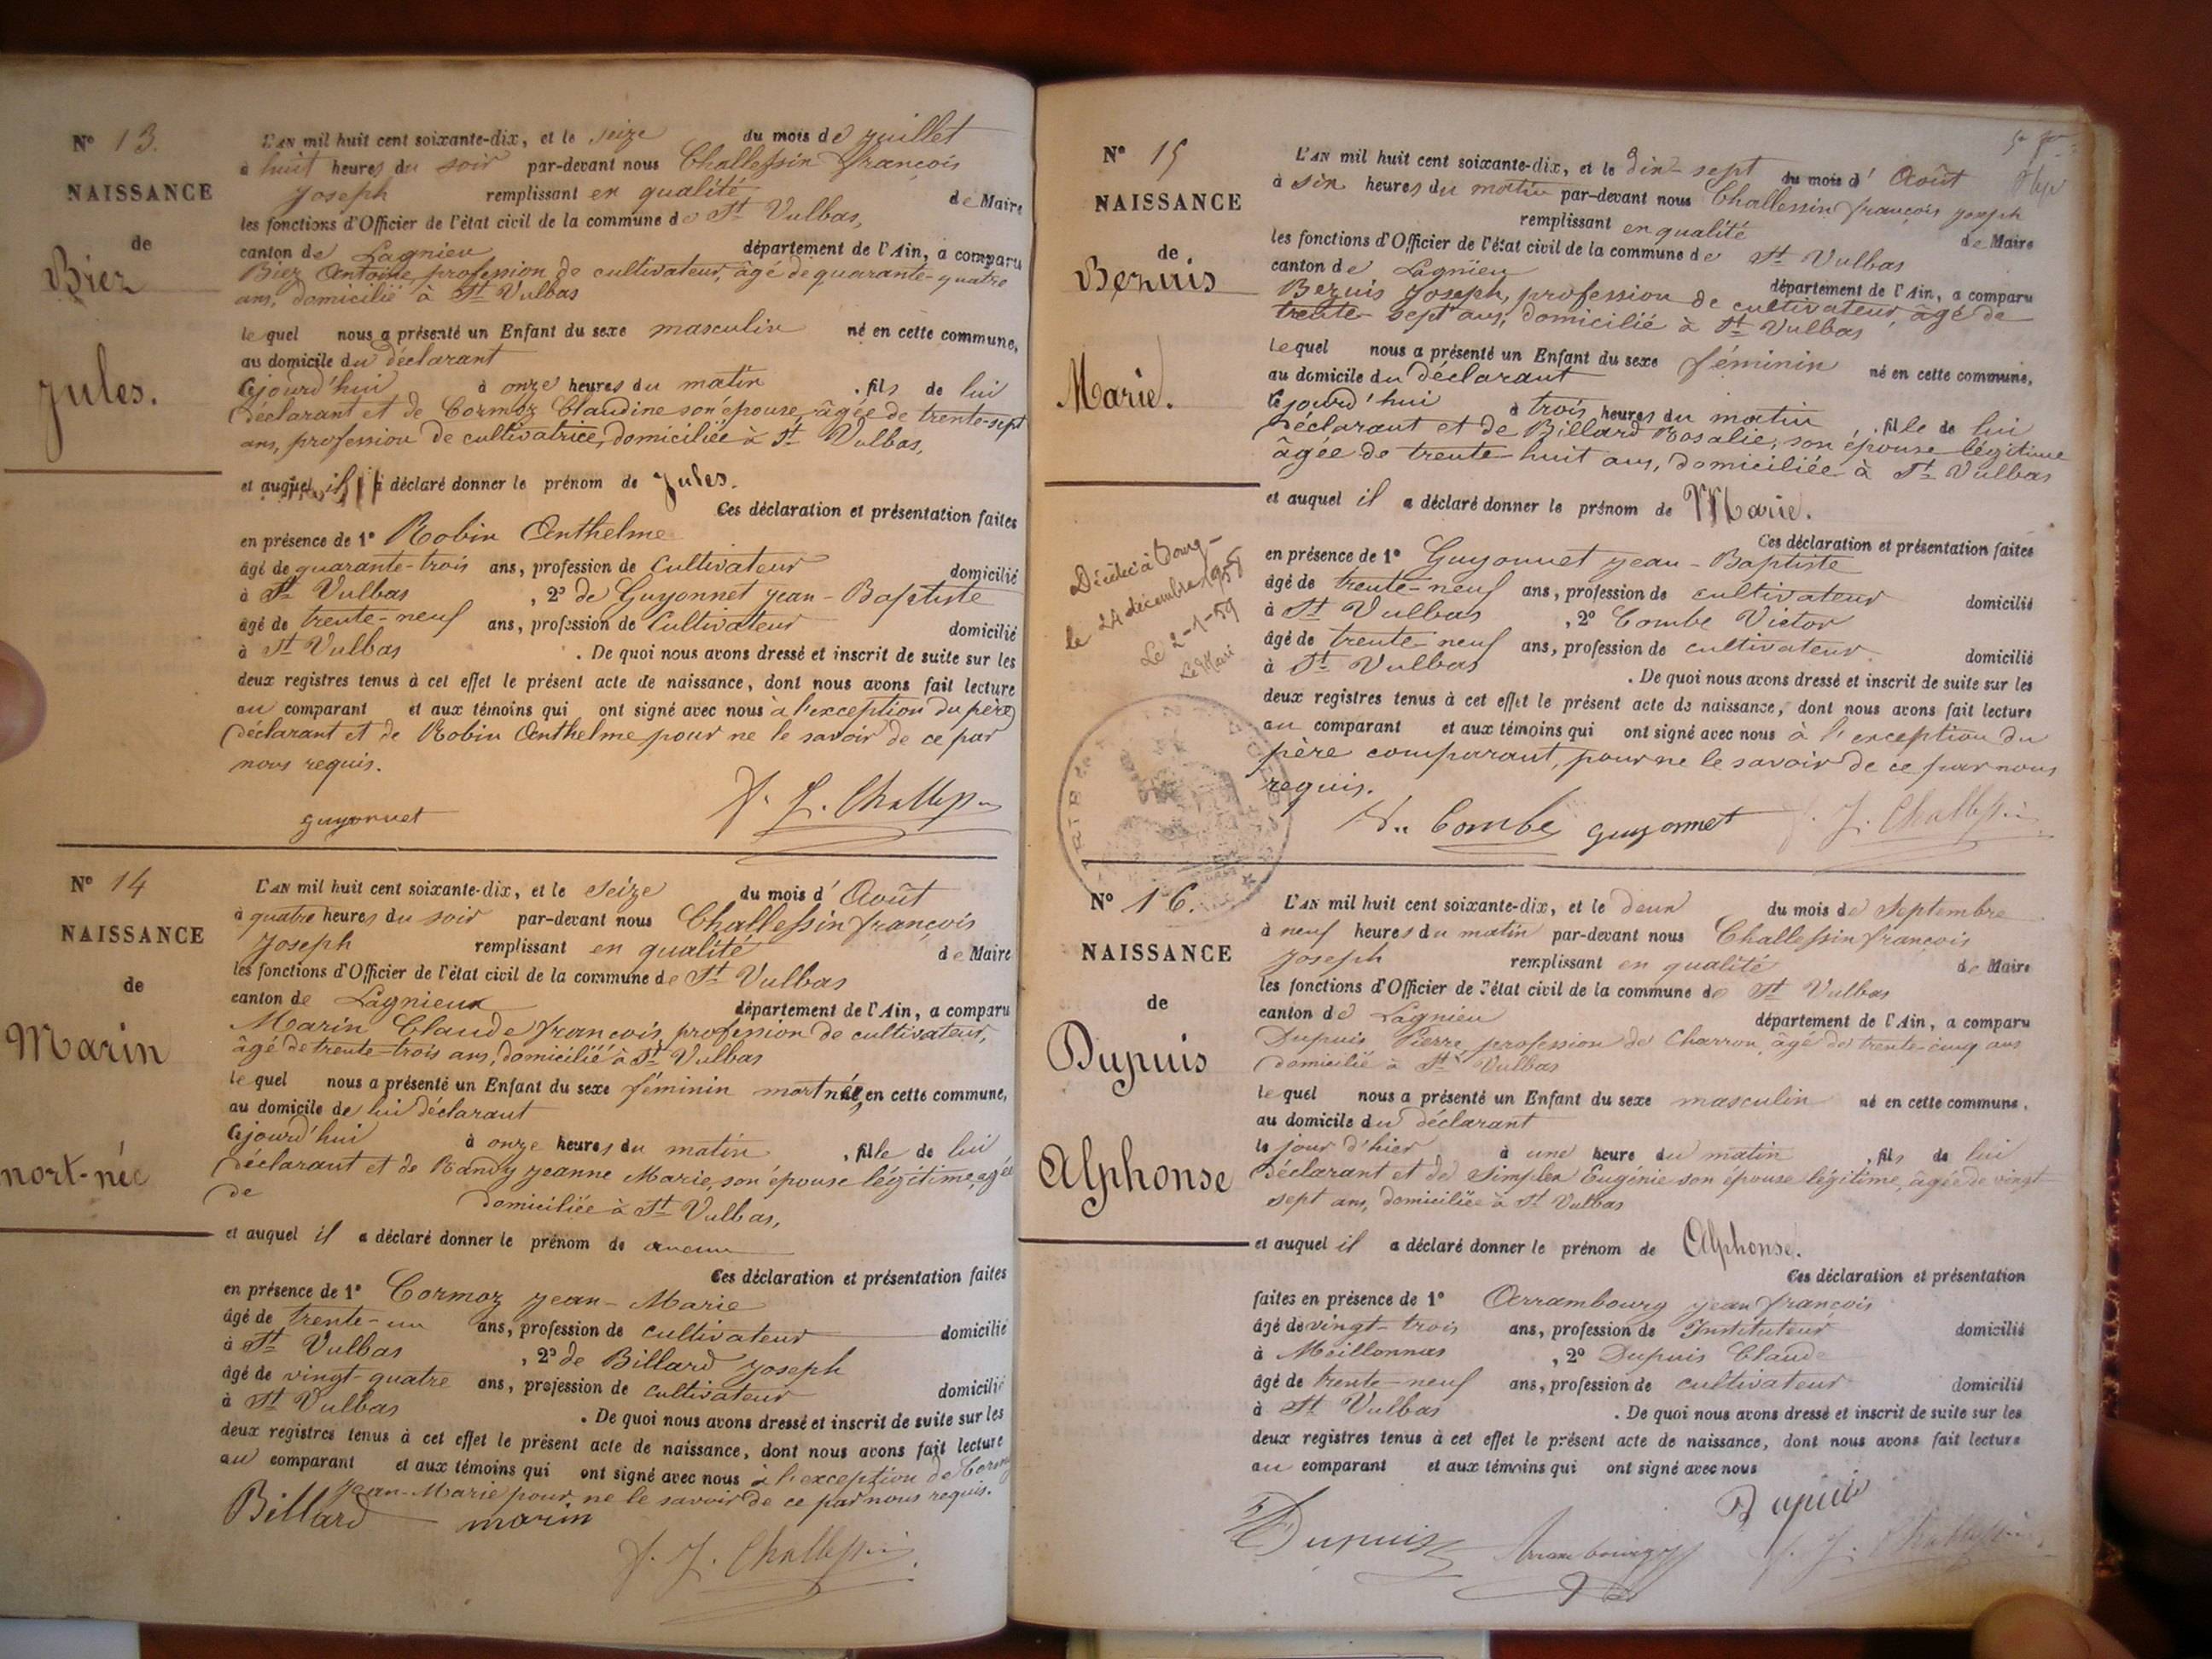 N° 13.
NAISSANCE
de
Biez
Jules.
L'AN mil huit cent soixante-dix, et le seize du mois de juillet
à huit heures du soir par-devant nous Challessin françois
Joseph remplissant en qualité de Maire
les fonctions d'Officier de l'état civil de la commune de St Vulbas,
canton de Lagnieu département de l'Ain, a comparu
Biez Antoine, profession de cultivateur, âgé de quarante-quatre
ans, domicilié à St Vulbas
lequel nous a présenté un Enfant du sexe masculin né en cette commune,
au domicile du déclarant
cejourd'hui à onze heures du matin, fils de lui
déclarant et de Cormoz Claudine son épouse, âgée de trente-sept
ans, profession de cultivatrice, domiciliée à St Vulbas,
et auquel il a déclaré donner le prénom de Jules.
Ces déclaration et présentation faites
en présence de 1° Robin Anthelme
âgé de quarante-trois ans, profession de Cultivateur domicilié
à St Vulbas, 2° de Guyonnet Jean-Baptiste
âgé de trente-neuf ans, profession de Cultivateur domicilié
à St Vulbas. De quoi nous avons dressé et inscrit de suite sur les
deux registres tenus à cet effet le présent acte de naissance, dont nous avons fait lecture
au comparant et aux témoins qui ont signé avec nous à l'exception du père
déclarant et de Robin Anthelme pour ne le savoir de ce par
nous requis.
guyonnet f. J. Challessin
N° 14
NAISSANCE
de
Marin
mort-née
L'AN mil huit cent soixante-dix, et le seize du mois d'Août
à quatre heures du soir par-devant nous Challessin françois
Joseph remplissant en qualité de Maire
les fonctions d'Officier de l'état civil de la commune de St Vulbas
canton de Lagnieux département de l'Ain, a comparu
Marin Claude françois, profession de cultivateur,
âgé de trente-trois ans, domicilié à St Vulbas
lequel nous a présenté un Enfant du sexe féminin mort née, en cette commune,
au domicile de lui déclarant
cejourd'hui à onze heures du matin, fille de lui
déclarant et de Randy Jeanne Marie, son épouse légitime, agée
de domiciliée à St Vulbas,
et auquel il a déclaré donner le prénom de aucun
Ces déclaration et présentation faites
en présence de 1° Cormoz Jean-Marie
âgé de trente-un ans, profession de cultivateur domicilié
à St Vulbas, 2° de Billard Joseph
âgé de vingt-quatre ans, profession de cultivateur domicilié
à St Vulbas. De quoi nous avons dressé et inscrit de suite sur les
deux registres tenus à cet effet le présent acte de naissance, dont nous avons fait lecture
au comparant et aux témoins qui ont signé avec nous à l'exception de Cormoz
Jean-Marie pour ne le savoir de ce par nous requis.
Billard marin
f. J. Challessin
N° 15
NAISSANCE
de
Bezuis
Marie.
L'AN mil huit cent soixante-dix, et le dix-sept du mois d'Août
à six heures du matin par-devant nous Challessin françois Joseph
remplissant en qualité de Maire
les fonctions d'Officier de l'état civil de la commune de St Vulbas
canton de Lagnieu département de l'Ain, a comparu
Bezuis Joseph, profession de cultivateur, âgé de
trente-sept ans, domicilié à St Vulbas
lequel nous a présenté un Enfant du sexe féminin né en cette commune,
au domicile du déclarant
cejourd'hui à trois heures du matin, fille de lui
déclarant et de Billard Rosalie, son épouse légitime
âgée de trente-huit ans, domiciliée à St Vulbas
et auquel il a déclaré donner le prénom de Marie.
Ces déclaration et présentation faites
en présence de 1° Guyonnet Jean-Baptiste
âgé de trente-neuf ans, profession de cultivateur domicilié
à St Vulbas, 2° Combe Victor
âgé de trente neuf ans, profession de cultivateur domicilié
à St Vulbas. De quoi nous avons dressé et inscrit de suite sur les
deux registres tenus à cet effet le présent acte de naissance, dont nous avons fait lecture
au comparant et aux témoins qui ont signé avec nous à l'exception du
père comparant, pour ne le savoir de ce par nous
requis.
Combe guyonnet f. J. Challessin
Décédée à Bourg
le 24 décembre 1958
Le 2-1-59
Le Maire
N° 16.
NAISSANCE
de
Dupuis
Alphonse
L'AN mil huit cent soixante-dix, et le deux du mois de Septembre
à neuf heures du matin par-devant nous Challessin françois
Joseph remplissant en qualité de Maire
les fonctions d'Officier de l'état civil de la commune de St Vulbas
canton de Lagnieu département de l'Ain, a comparu
Dupuis Pierre, profession de Charron, âgé de trente-cinq ans
domicilié à St Vulbas
lequel nous a présenté un Enfant du sexe masculin né en cette commune,
au domicile du déclarant
le jour d'hier à une heure du matin, fils de lui
déclarant et de Simplex Eugénie son épouse légitime, âgée de vingt
sept ans, domiciliée à St Vulbas
et auquel il a déclaré donner le prénom de Alphonse.
Ces déclaration et présentation
faites en présence de 1° Arrambourg Jean françois
âgé de vingt-trois ans, profession de Instituteur domicilié
à Meillonnas, 2° Dupuis Claude
âgé de trente-neuf ans, profession de cultivateur domicilié
à St Vulbas. De quoi nous avons dressé et inscrit de suite sur les
deux registres tenus à cet effet le présent acte de naissance, dont nous avons fait lecture
au comparant et aux témoins qui ont signé avec nous
Dupuis
Dupuis Arrambourg f. J. Challessin